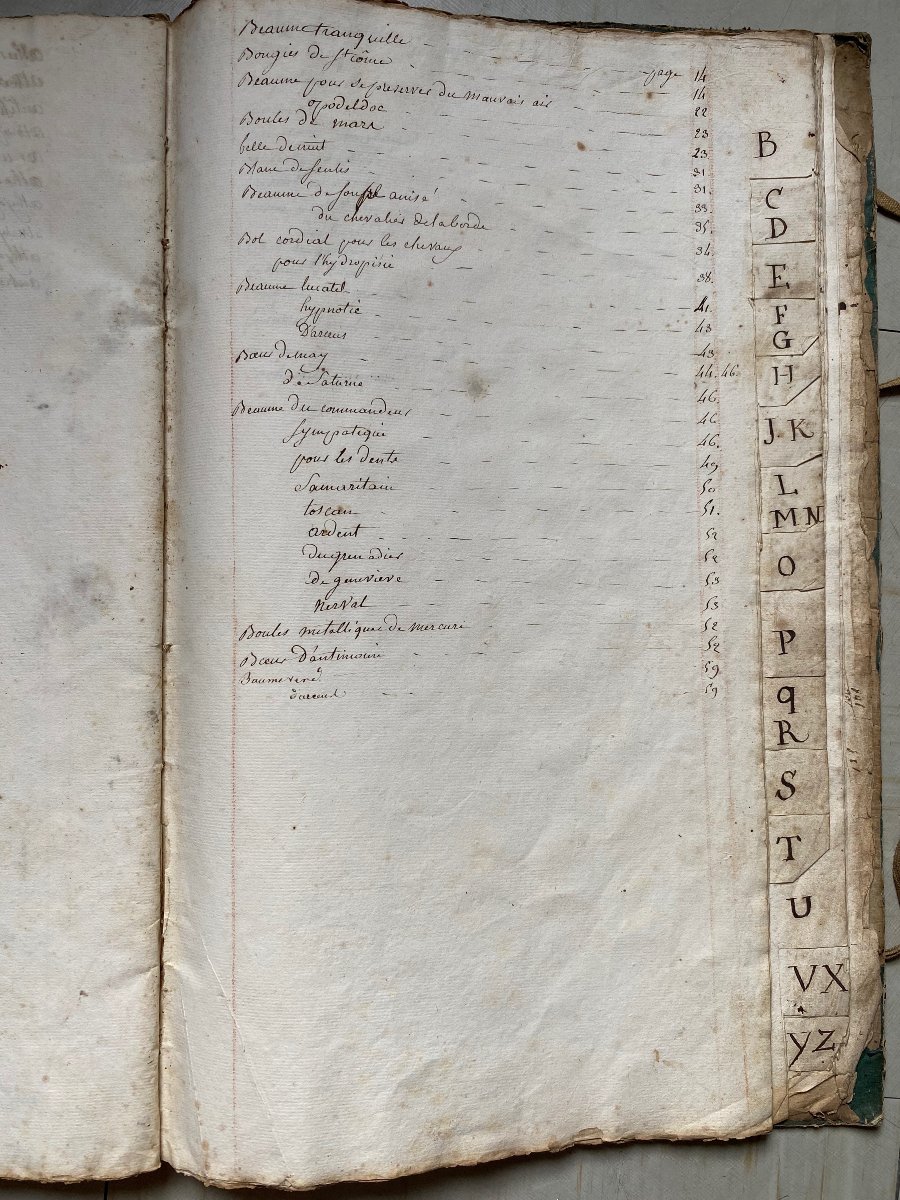 Beaume tranquille - - - - page 14
Bougies de St Côme - - - - 14
Beaume pour se preserver du mauvais air - - 22
opodeldoc - - - - 23
Boules de mars - - - - 23
belle de nuit - - - - 31
Blanc de senlis - - - - 31.
Beaume de soufre anisé - - - - 33.
du chevalier de laborde - - - - 35.
Bol cordial pour les chevaux - - - - 34.
pour l'hydropisie - - - - 38.
Beaume lucatel - - - - 41.
hypnotic - - - - 43
D'arceus - - - - 43.
Beure de may - - - - 44. 46.
de Saturne - - - - 46.
Beaume du commandeur - - - - 46
sympatique - - - - 46.
pour les dents - - - - 49
Samaritain - - - - 50
toscan - - - - 51.
ardent - - - - 52
du grenadier - - - - 52
de genevieve - - - - 53
nerval - - - - 53
Boules metallique de mercure - - - - 52
Beure d'antimoine - - - - 52
Baume verd - - - - 59
d'arceus - - - - 59
B
C
D
E
F
G
H
J. K
L
M N
O
P
q
R
S
T
U
V X
y z